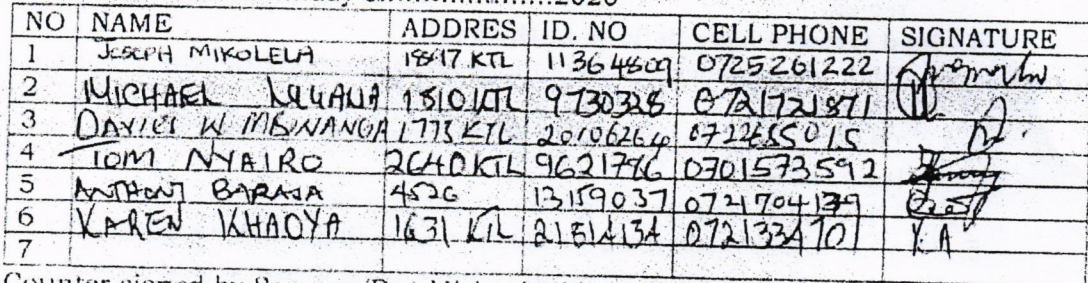 2020
NO NAME ADDRES ID. NO CELL PHONE SIGNATURE
1 JOSEPH MIKOLELA 1847 KTL 11364809 0725261222
2 MICHAEL 1810 KTL 9730328 0721721871
3 DAVIES W 1773 KTL 20106264 0722655015
4 TOM NYAIRO 2640 KTL 9621786 0701573592
5 ANTHONY BARASA 4526 13159037 0721704139
6 KAREN KHAOYA 1631 KTL 21814134 0721334701 K A
7
Counter signed by